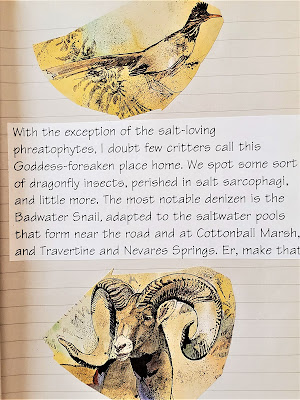 With the exception of the salt-loving
phreatophytes, I doubt few critters call this
Goddess-forsaken place home. We spot some sort
of dragonfly insects, perished in salt sarcophagi,
and little more. The most notable denizen is the
Badwater Snail, adapted to the saltwater pools
that form near the road and at Cottonball Marsh,
and Travertine and Nevares Springs. Er, make that